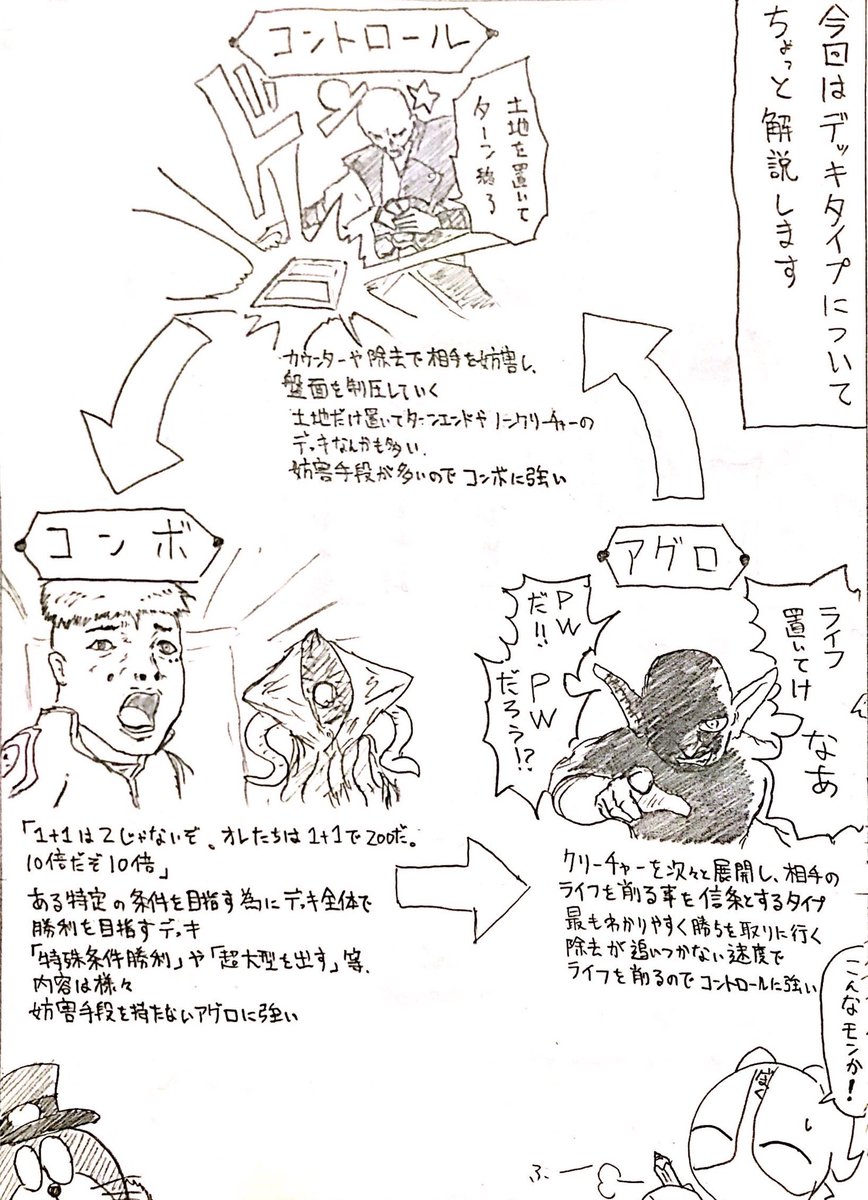 今回はデッキタイプについて
ちょっと解説します
コントロール
土地を置いて
ターン終了
ドン
カウンターや除去で相手を妨害し、
盤面を制圧していく
土地だけ置いてターンエンドやノンクリーチャーの
デッキなんかも多い.
妨害手段が多いのでコンボに強い
コンボ
「1+1は2じゃないぞ。オレたちは1+1で200だ。
10倍だぞ10倍」
ある特定の条件を目指す為にデッキ全体で
勝利を目指すデッキ
「特殊条件勝利」や「超大型を出す」等、
内容は様々
妨害手段を持たないアグロに強い
アグロ
ライフ
置いてけ
なあ
PW
だ!!
PW
だろう!?
クリーチャーを次々と展開し、相手の
ライフを削る事を信条とするタイプ
最もわかりやすく勝ちを取りに行く
除去が追いつかない速度で
ライフを削るのでコントロールに強い
こんなモンか!
ぼく
ふー